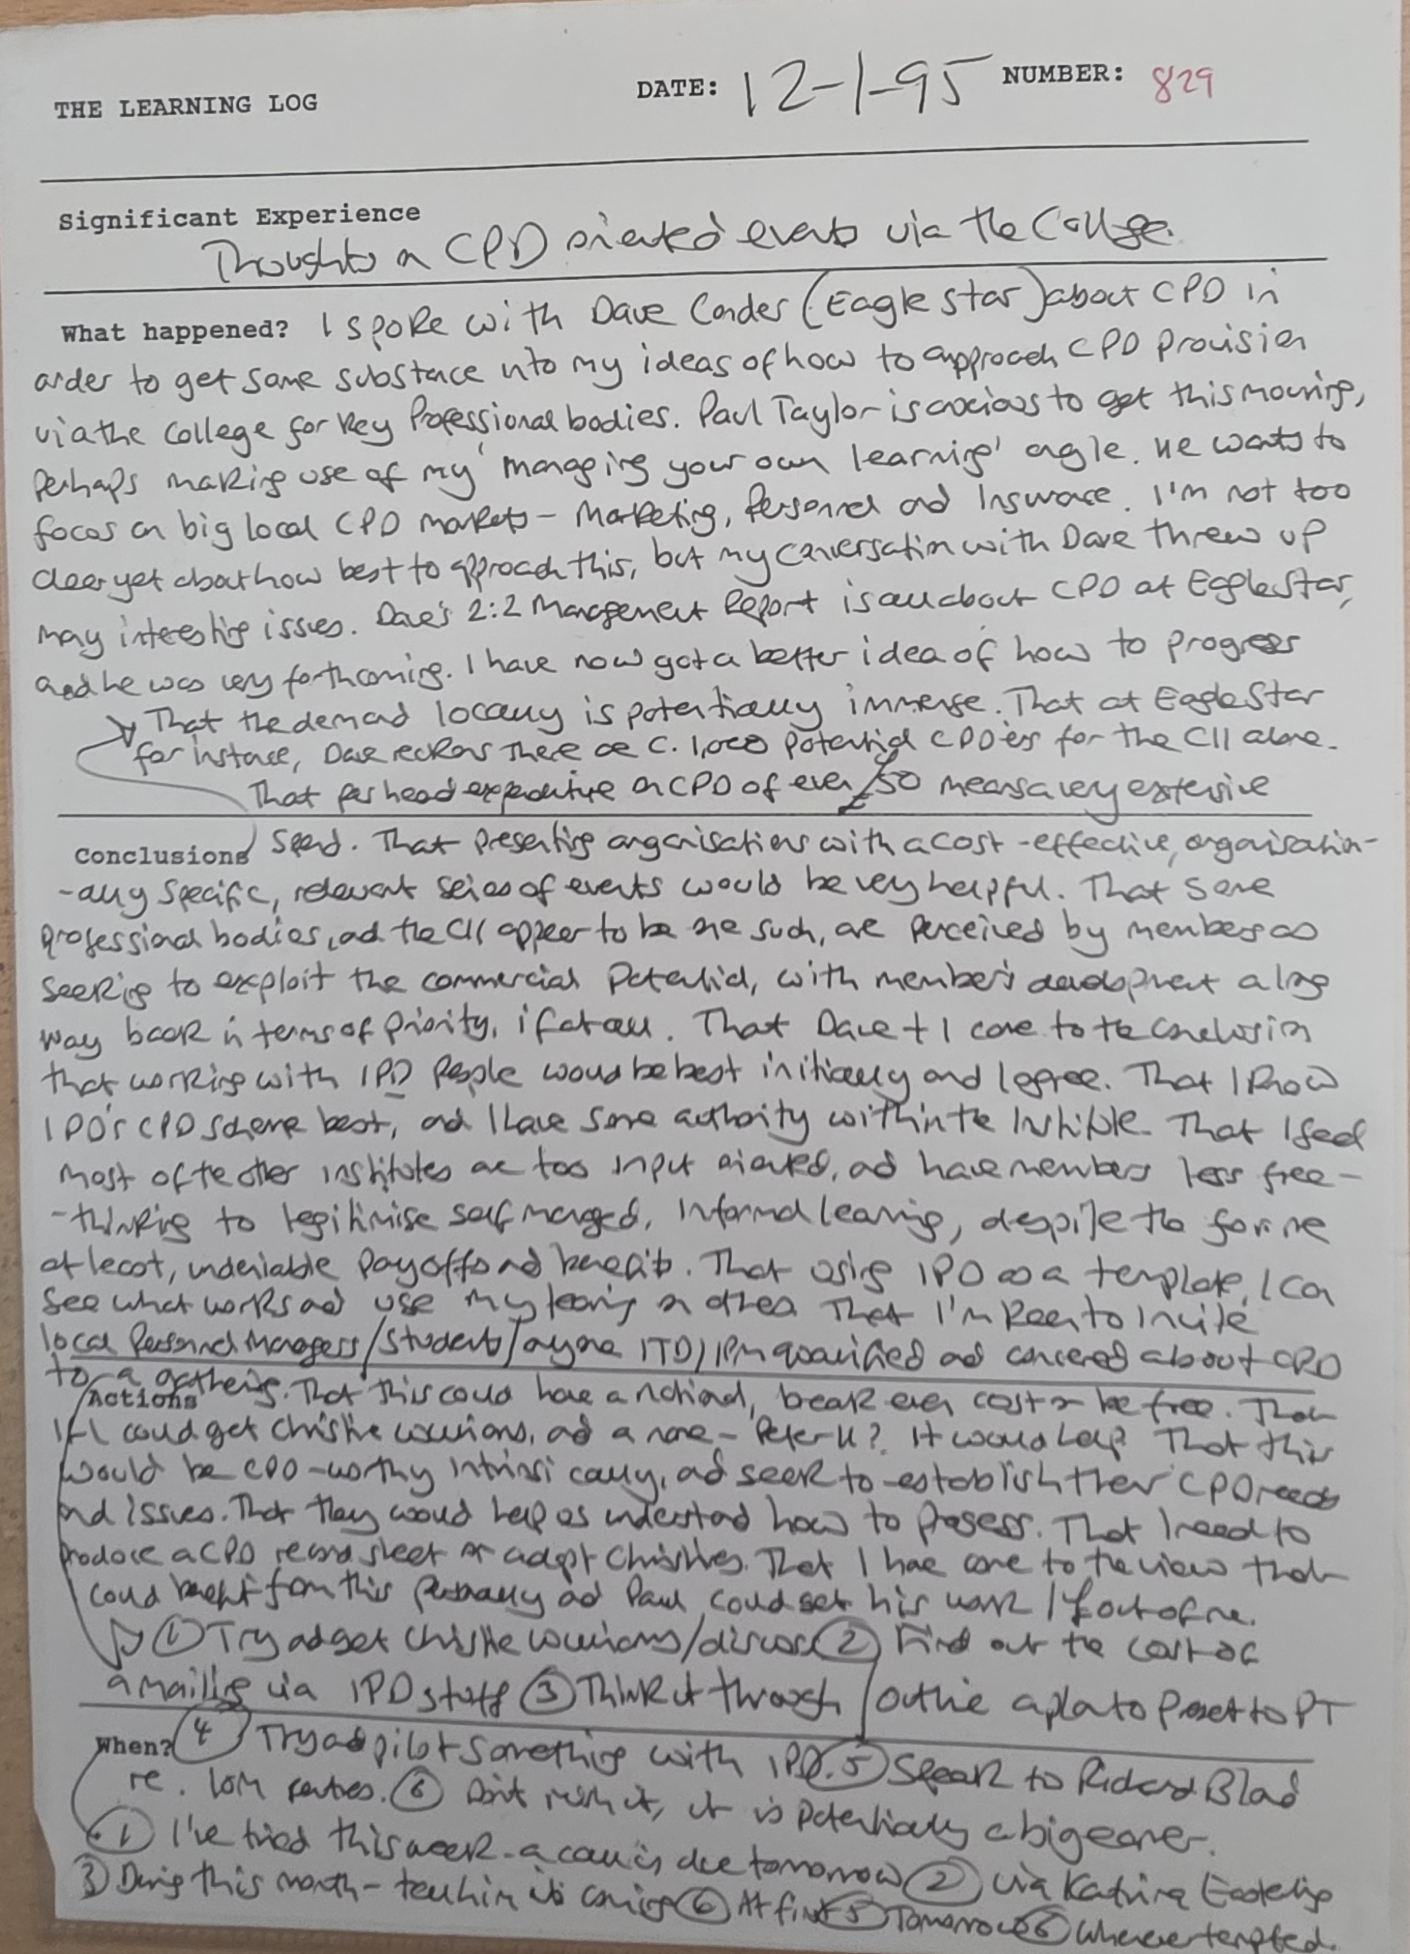 THE LEARNING LOG DATE: 12-1-95 NUMBER: 829
Significant Experience
Thoughts on CPD oriented events via the College.
What happened? I spoke with Dave Conder (Eagle Star) about CPD in
order to get some substance into my ideas of how to approach CPD provision
via the College for key Professional bodies. Paul Taylor is anxious to get this moving,
perhaps making use of my 'managing your own learning' angle. He wants to
focus on big local CPD markets - Marketing, Personnel and Insurance. I'm not too
clear yet about how best to approach this, but my conversation with Dave threw up
many interesting issues. Dave's 2:2 Management Report is all about CPD at Eagle Star,
and he was very forthcoming. I have now got a better idea of how to progress
That the demand locally is potentially immense. That at Eagle Star
for instance, Dave reckons there are c. 1,000 potential CPD'ers for the CII alone.
That per head expenditure on CPD of even £50 means a very extensive
Conclusions spend. That presenting organisations with a cost-effective, organisation-
-ally specific, relevant series of events would be very helpful. That some
professional bodies, and the CII appear to be one such, are perceived by members as
seeking to exploit the commercial potential, with member's development a long
way back in terms of priority, if at all. That Dave + I came to the conclusion
that working with IPD people would be best initially and I agree. That I know
IPD's CPD scheme best, and I have some authority within the Institute. That I feel
most of the other institutes are too input oriented, and have members less free-
-thinking to legitimise self managed, informal learning, despite the for me
at least, undeniable payoffs and benefits. That using IPD as a template, I can
see what works and use my learning in others That I'm keen to invite
local Personnel Managers/Students/anyone ITD/IPM qualified and concerned about CPD
to a gathering. That this could have a notional, break even cost or be free. That
Actions
if I could get Christie and a name - Peter H? It would help That this
would be CPD-worthy intrinsically, and seek to establish their CPD needs
and issues. That they would help us understand how to progress. That I need to
produce a CPD record sheet or adapt Christie's. That I have come to the view that
could benefit from this personally and Paul could get his work out of me.
① Try and get Christie /discuss ② Find out the cost of
a mailing via IPD stuff ③ Think it through / outline a plan to present to PT
When? ④ Try and pilot something with IPD. ⑤ Speak to Richard
re. ⑥ Don't rush it, it is potentially a big earner.
① I've tried this week - a call is due tomorrow ② via Katrina
③ During this month - tell him it's coming At first ⑤ Tomorrow ⑥ Whenever tempted.